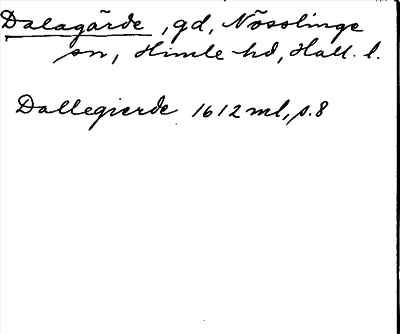 Dalagärde, gd, Nösslinge
sn, Himle hd, Hall. l.
Dallegierde 1612 ml, s. 8